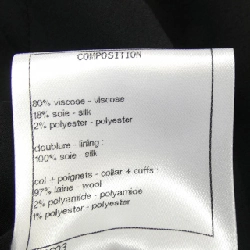 COMPOSITION
80% viscose - viscose
18% soie - silk
2% polyester - polyester
doublure - lining :
100% soie - silk
col + poignets - collar + cuffs :
97% laine - wool
2% polyamide - polyamide
1% polyester - polyester